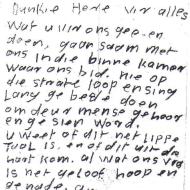 Dankie Here vir alles
wat u vir ons gee en
doen, gaan saam met
ons in die binne kamer
waar ons bid. nie op
die strate loop en sing
lang ge bede doen
om deur mense gehoor
en ge sien word.
u weet of dit net lippe
Taal is. en of dit uit die
hart kom. al wat ons vra
is net geloof hoop en
genade.